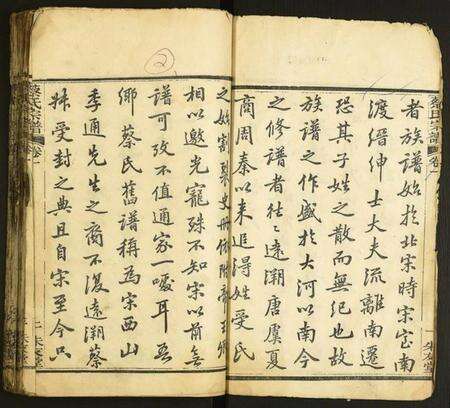 者族譜始於北宋時宋室南
渡縉紳士大夫流離南遷
恐其子姓之散而無紀也故
族譜之作盛於大河以南今
之修譜者往往遠溯唐虞夏
商周秦以來追得姓受氏
之始
相以邀光寵殊不知宋以前無
譜可攷不值通家一噱耳吾
鄉蔡氏舊譜稱為宋西山
季通先生之裔不復遠溯蔡
叔受封之典且自宋至今只
蔡氏宗譜 卷一
2